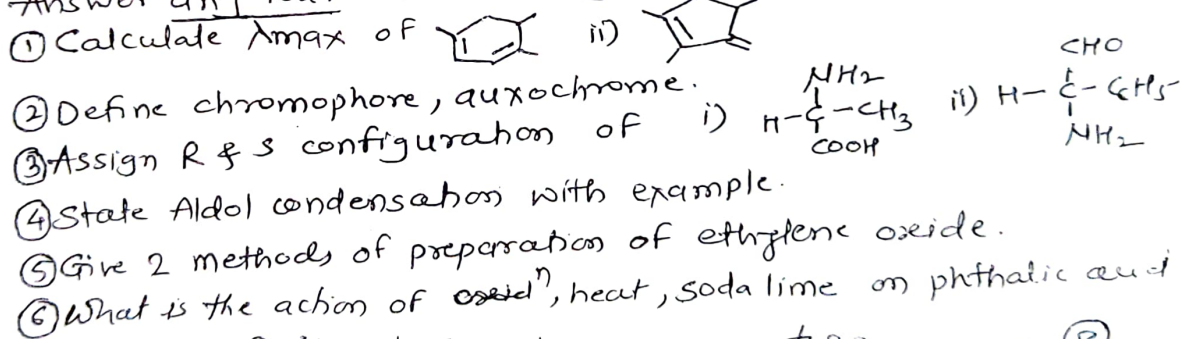 ① Calculate λmax of ii)
② Define chromophore, auxochrome.
③ Assign R & S configuration of i) H-C-CH3 NH2 COOH ii) H-C-C6H5 CHO NH2
④ State Aldol condensation with example.
⑤ Give 2 methods of preparation of ethylene oxide.
⑥ What is the action of heat, soda lime on phthalic acid